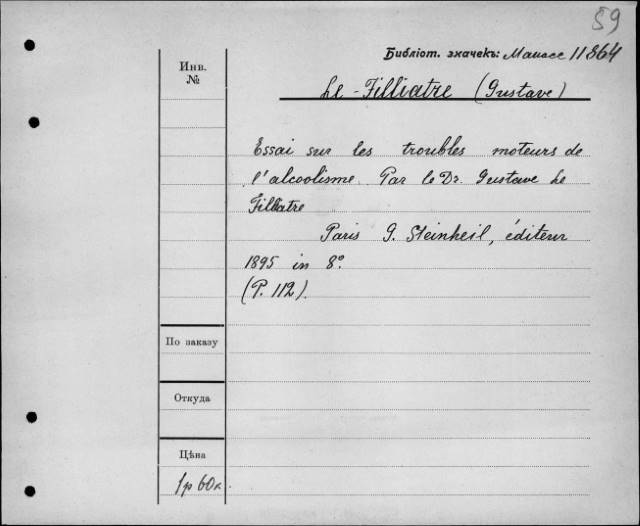 59
Инв.
№
Библіот. значекъ: Манасс 11864
Le-Filliatre (Gustave)
Essai sur les troubles moteurs de
l'alcoolisme. Par le Dr. Gustave Le
Filliatre
Paris G. Steinheil, éditeur
1895 in 8°.
(P. 112).
По заказу
Откуда
Цѣна
1р 60к